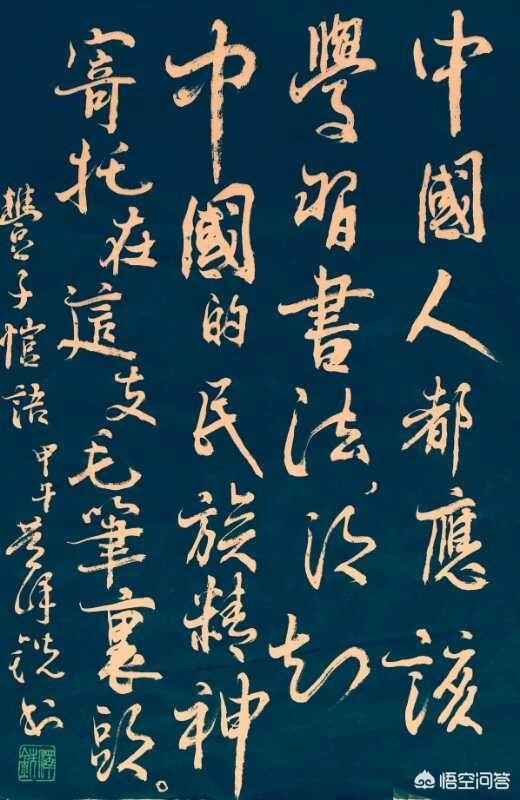 中國人都應該
學習書法，須知
中國的民族精神
寄托在這支毛筆裏頭。
豐子愷語 甲午
悟空问答